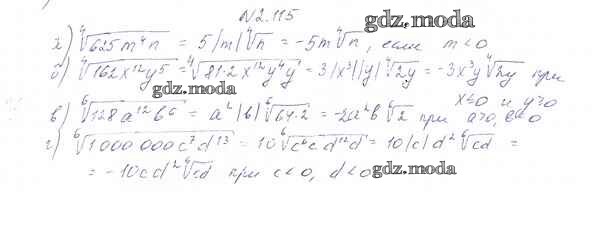 N2.115
gdz.moda
а) ∜625m⁴n = 5|m|∜n = -5m∜n, если m<0
б) ∜162x¹²y⁵ = ∜81·2x¹²y⁴y = 3|x³||y|∜2y = -3x³y∜2y при
x≤0 и y≥0
gdz.moda
в) ⁶√128a¹²b⁶ = a²|b|⁶√64·2 = -2a²b⁶√2 при a>0, b<0
г) ⁶√1000000c⁷d¹³ = 10⁶√c⁶c d¹²d = 10|c|d²⁶√cd =
= -10cd²⁶√cd при c<0, d<0
gdz.moda